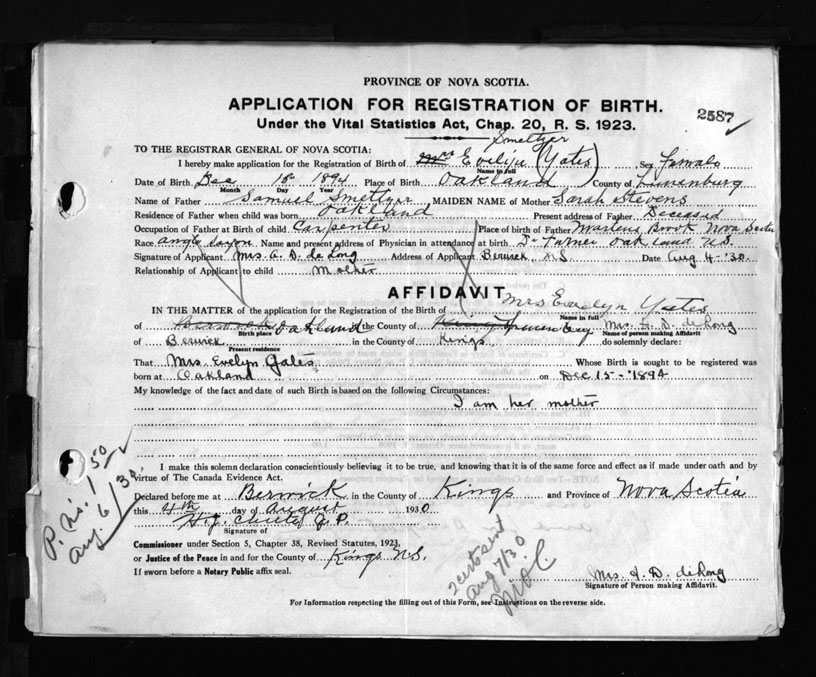 PROVINCE OF NOVA SCOTIA.
APPLICATION FOR REGISTRATION OF BIRTH.
2587
Under the Vital Statistics Act, Chap. 20, R. S. 1923.
Smeltzer
TO THE REGISTRAR GENERAL OF NOVA SCOTIA:
I hereby make application for the Registration of Birth of Mrs Evelyn (Yates) Sex Female
Name in full
Date of Birth Dec 15 1894 Place of Birth Oakland County of Lunenburg
Month Day Year
Name of Father Samuel Smeltzer MAIDEN NAME of Mother Sarah Stevens
Residence of Father when child was born Oakland Present address of Father Deceased
Occupation of Father at Birth of child Carpenter Place of birth of Father Brook Nova Scotia
Race Anglo Saxon Name and present address of Physician in attendance at birth Dr Turner Oakland
Signature of Applicant Mrs. A. D. de Long Address of Applicant Berwick NS Date Aug 4-'30.
Relationship of Applicant to child Mother
AFFIDAVIT
IN THE MATTER of the application for the Registration of the Birth of Mrs Evelyn Yates
Name in full
of Berwick Oakland in the County of Kings Mrs. A. D. de Long
Birth place Name of person making Affidavit
of Berwick in the County of Kings do solemnly declare:
Present residence
That Mrs. Evelyn Yates Whose Birth is sought to be registered was
born at Oakland on Dec 15-'1894
My knowledge of the fact and date of such Birth is based on the following Circumstances:
I am her mother
I make this solemn declaration conscientiously believing it to be true, and knowing that it is of the same force and effect as if made under oath and by
virtue of The Canada Evidence Act.
Declared before me at Berwick in the County of Kings and Province of Nova Scotia
this 4th day of August 1930
J.P.
Signature of
Commissioner under Section 5, Chapter 38, Revised Statutes, 1923,
or Justice of the Peace in and for the County of Kings N.S.
If sworn before a Notary Public affix seal.
Mrs. A. D. de Long
Signature of Person making Affidavit.
For Information respecting the filling out of this Form, see Instructions on the reverse side.
P. No. 1 50
Aug. 6/30
2 certs sent
Aug 7/30